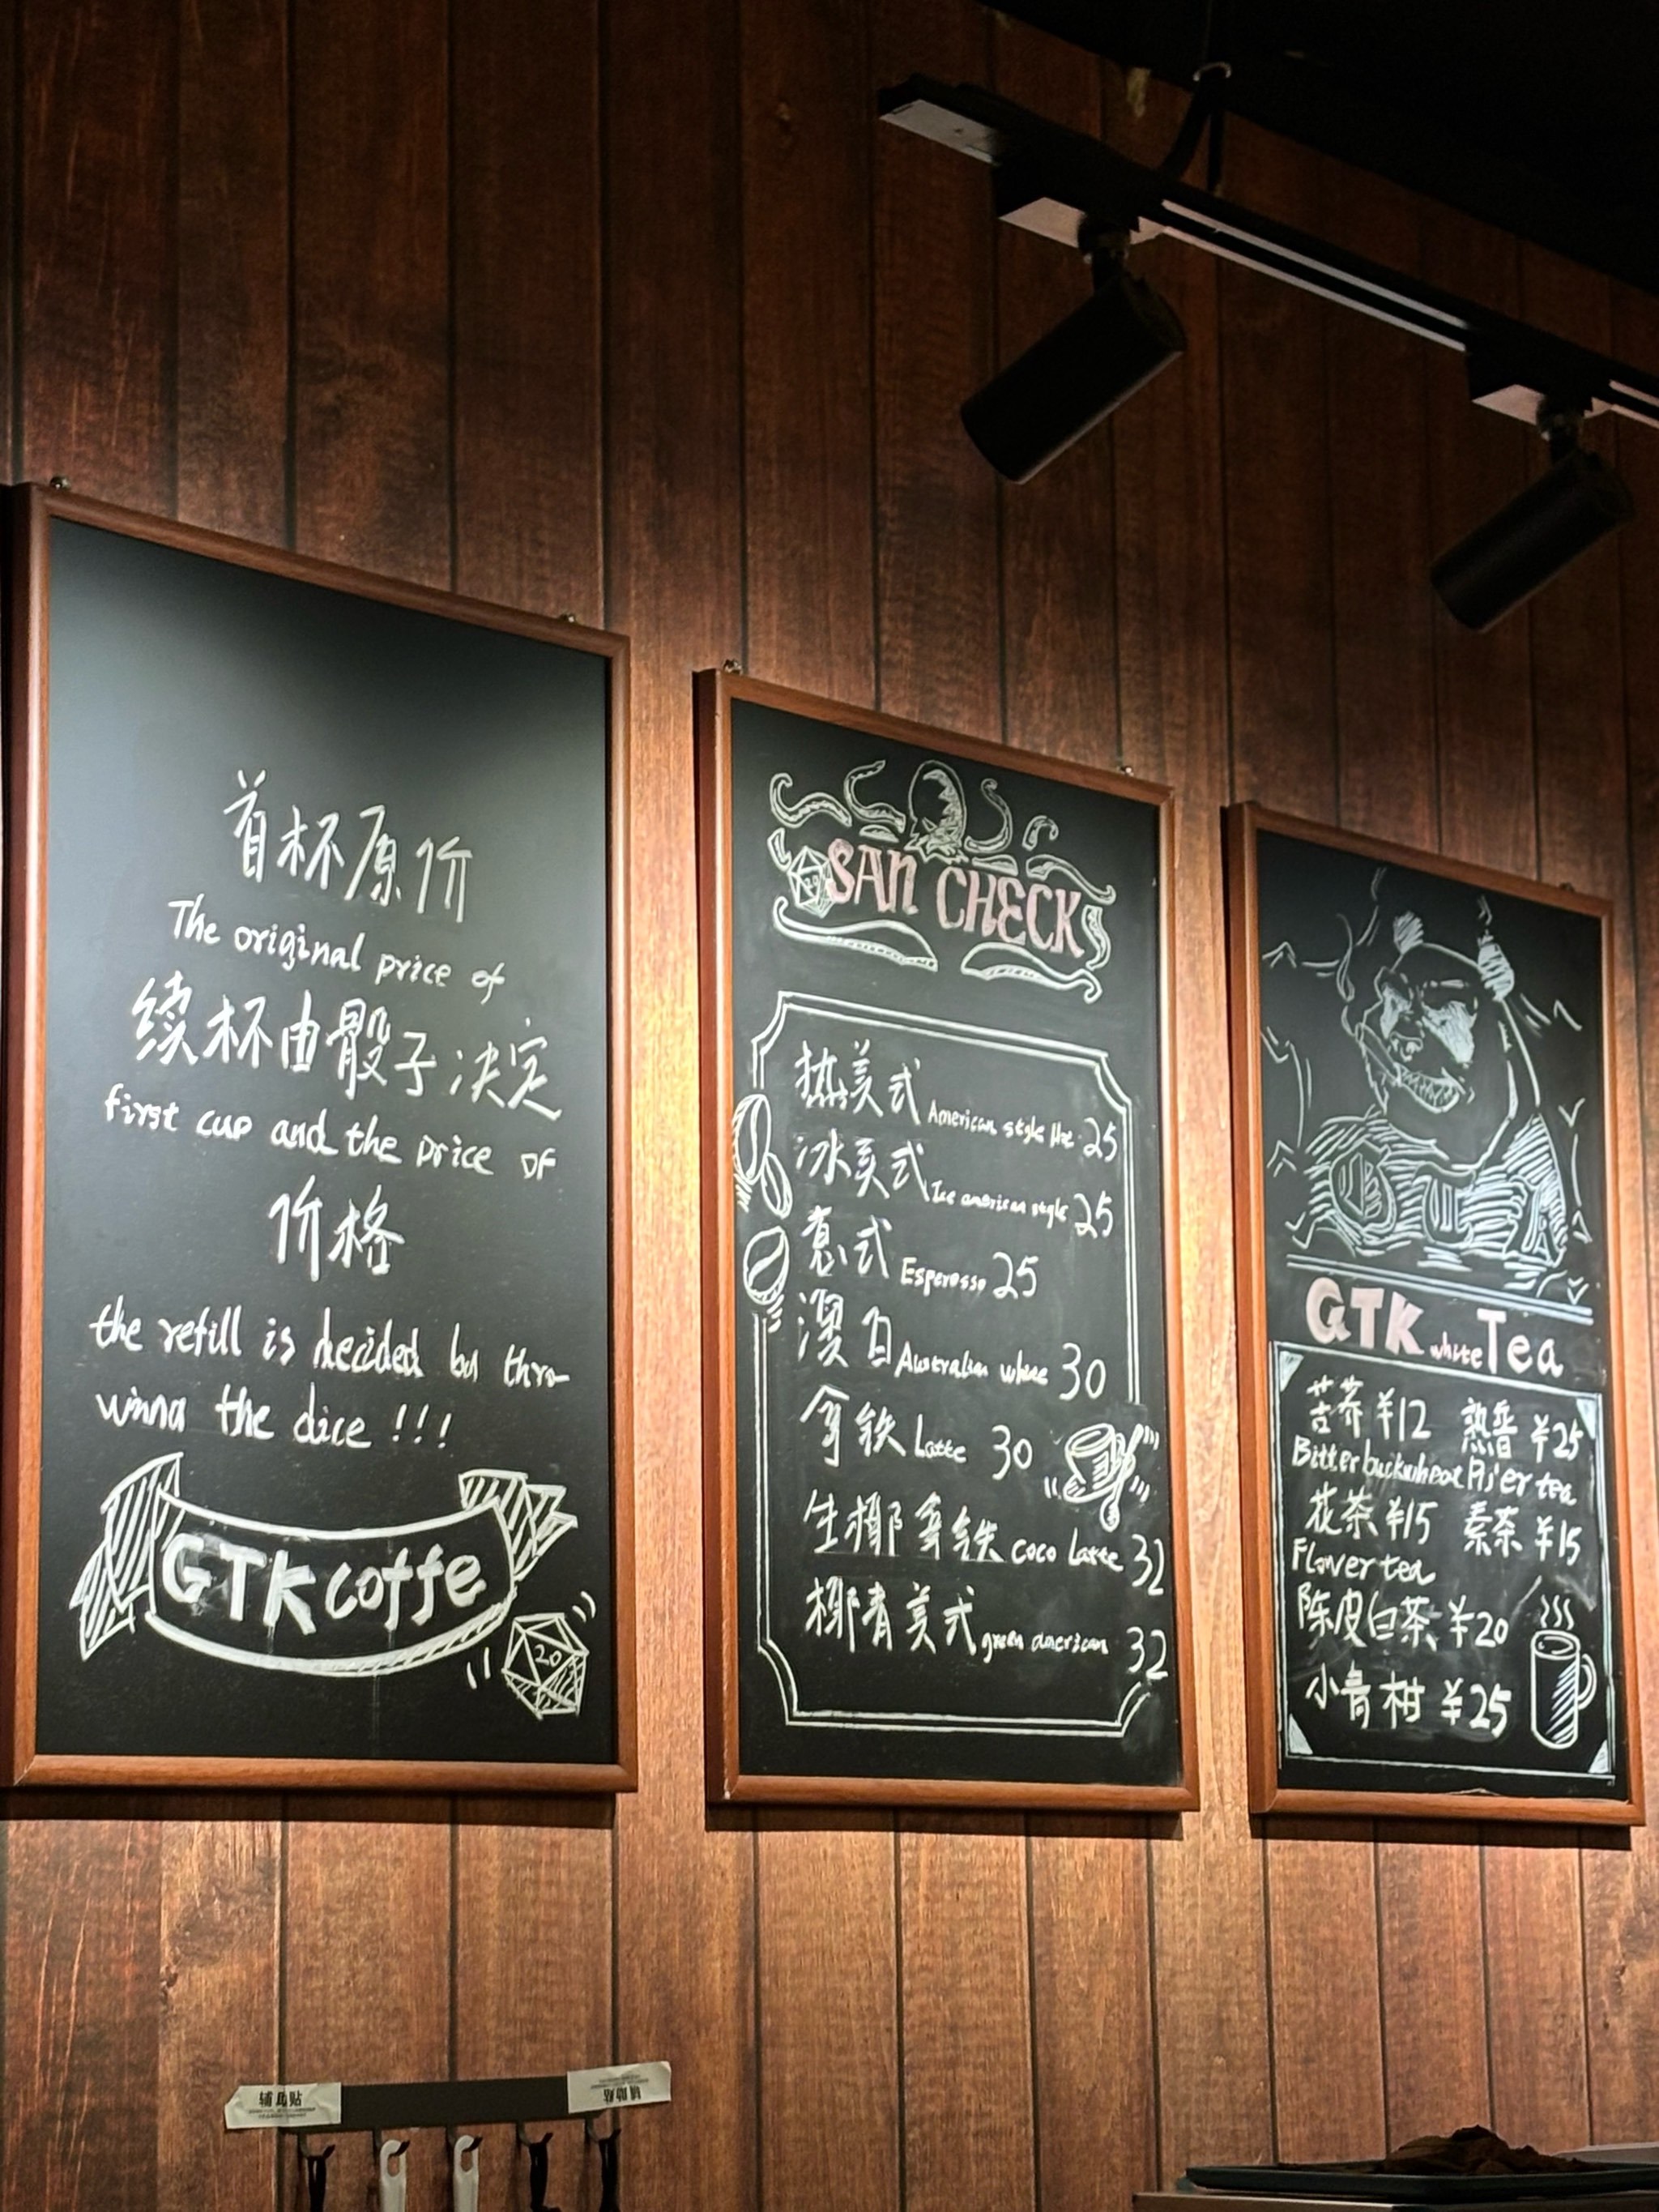 首杯原价
The original price of
续杯由骰子决定
first cup and the price of
价格
the refill is decided by thro-
wing the dice !!!
GTK coffe
20
SAN CHECK
20
热美式 American style 25
冰美式 Ice american style 25
意式 Esperosso 25
澳白 Australian white 30
拿铁 Latte 30
生椰拿铁 coco Latte 32
椰青美式 green american 32
GTK white Tea
苦荞 ¥12 熟普 ¥25
Bitter buckwheat Pu'er tea
花茶 ¥15 素茶 ¥15
Flower tea
陈皮白茶 ¥20
小青柑 ¥25
辅助贴
辅助贴